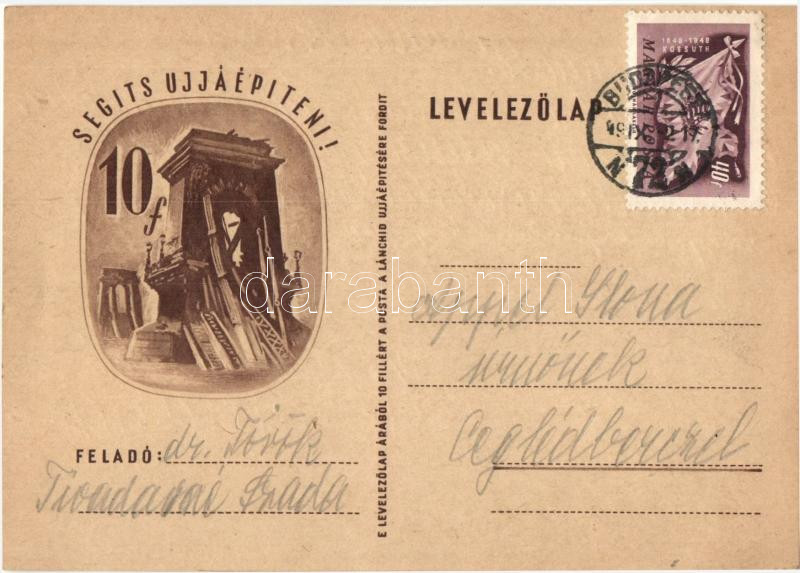 SEGITS UJJÁÉPITENI!
10 f
FELADÓ: dr. Török
Tivadarné Szada
E LEVELEZŐLAP ÁRÁBÓL 10 FILLÉRT A POSTA A LÁNCHID UJJÁÉPITÉSÉRE FORDIT
LEVELEZŐLAP
1848-1948
KOSSUTH
MAGYAR POSTA
40f
BUDAPEST
72
Ilona
urnőnek
Ceglédbercel
darabanth